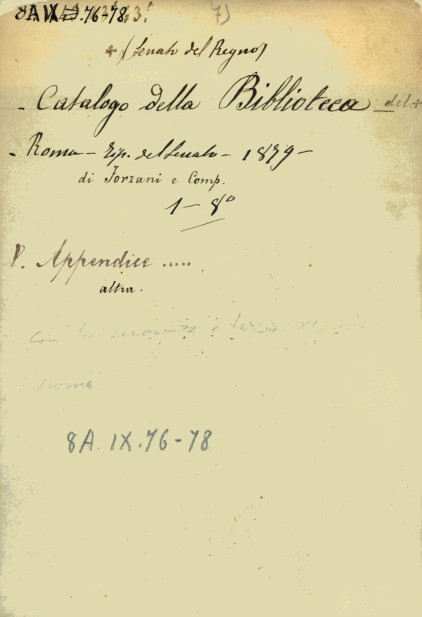 8A IX 76-78
7)
+ (Senato del Regno)
- Catalogo della Biblioteca - del +
- Roma - Tip. del Senato - 1879 -
di Forzani e Comp.
1 - 8°
V. Appendice .....
altra.
Con
Roma
8A. IX. 76-78